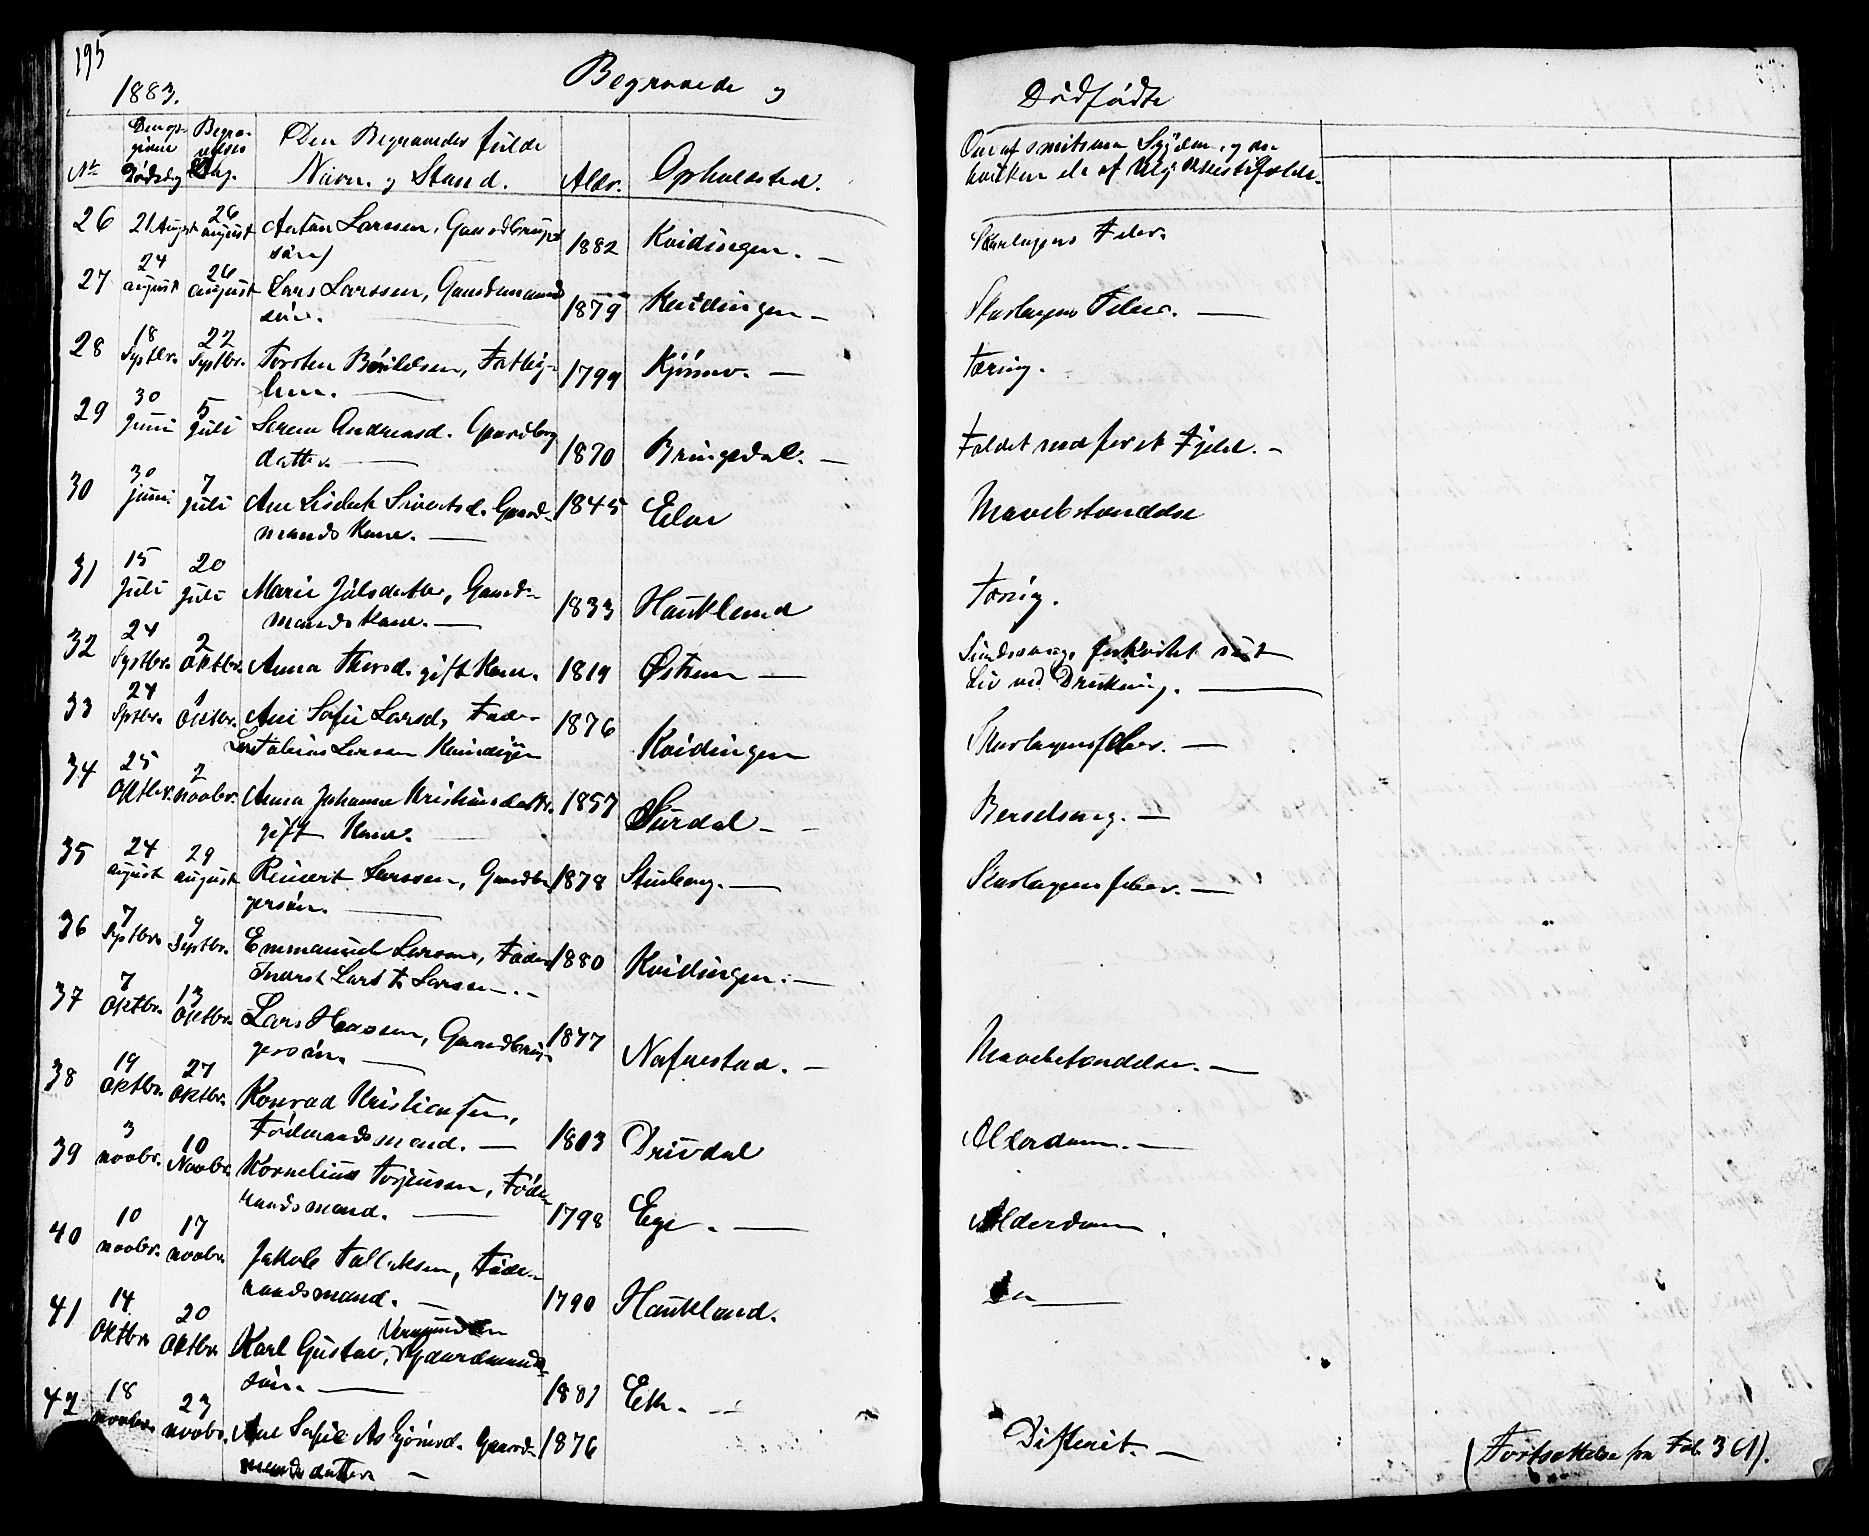 195
1883.
Begravede og
Dødfødte
No
Den opgivne Dødsdag
Begravelses Dag.
Den Begravedes fulde
Navn og Stand.
Alder.
Opholdssted.
Om af smitsom Sygdom, og om
26 21 August 26 august Anton Larssen, Gaardbrugers
søn 1882 Kvidingen. — Skarlagens Feber.
27 24 august 26 august Lars Larssen, Gaardmands
søn. 1879 Kvidingen — Skarlagens Feber. —
28 18 Septbr. 22 Septbr. Torsten Bårildsen, Fattig-
lem. — 1799 Tæring.
29 30 Juni 5 Juli Serene Andreasd. Gaardbrug
datter. — 1870 Bringedal. — Faldet ned for et Fjeld. —
30 30 juni 7 juli Ane Lisbeth Sivertsd. Gaard-
mands Kone. — 1845 Eloe Mavebetændelse
31 15 Juli 20 juli Marie Jålsdatter, Gaard-
mands Kone. — 1833 Haukland Tæring.
32 24 Septbr. 2 Oktbr. Anna Thorsd. gift Kone. 1819 Østrem — Sindssvag,
Liv ved Drukning. —
33 24 Sptbr. 1 Oktbr. Ane Sofie Larsd, Fader
Larssen 1876 Kvidingen Skarlagensfeber. —
34 25 Oktbr. 2 novbr. Anna Johanne Kristiansdatter.
gift Kone. — 1857 Surdal — Barselseng. —
35 24 august 29 august Reinert Larssen, Gaardbru
gersøn. — 1878 Stenberg. — Skarlagensfeber. —
36 7 Septbr. 9 Septbr. Emmanuel Larssen, Fader
Lars T. Larssen. — 1880 Kvidingen. —
37 7 Oktbr. 13 Oktbr. Lars Hanssen, Gaardbru-
gersøn. — 1877 Nafnestad. — Mavebetændelse. —
38 19 Oktbr. 27 Oktbr. Konrad Kristiansen,
Føderaadsmand. — 1803 Drivdal Alderdom. —
39 3 novbr. 10 Novbr. Kornelius Torjussen, Føde-
raadsmand. — 1798 Ege. — Alderdom.
40 10 novbr. 17 novbr. Jakob Tallaksen, Føde-
raadsmand. — 1790 Haukland. Do —
41 14 Oktbr. 20 Oktbr. Karl Gustav, Gaardmands
søn. — 1881 Eik. —
42 18 novbr. 23 novbr. Ane Sofie Asbjørnsd. Gaard-
mandsdatter — 1876 Difterit. —
(Fortsættelse paa Fol. 361).